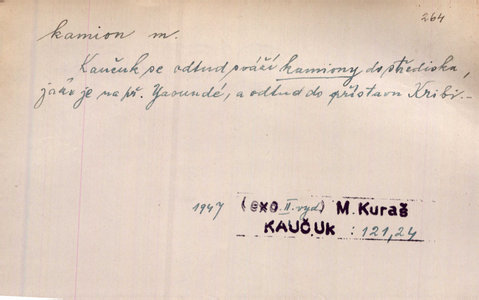 264
kamion m.
Kaučuk se odtud sváží kamiony do střediska,
jako je na př. Yaoundé, a odtud do přístavu Kribi.-
1947 (exc. II. vyd.) M. Kuraš
KAUČ.UK : 121,24